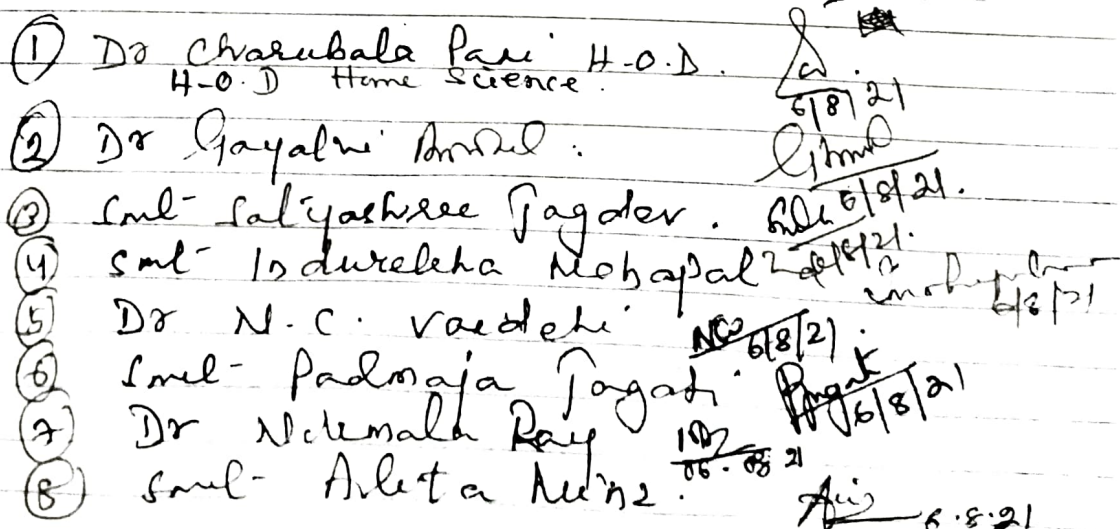 ① Dr Charubala Pani H.O.D. 6/8/21
H.O.D Home Science.
② Dr Gayatri 6/8/21.
③ Smt- Satyashree Jagdev. 6/8/21.
④ Smt- Indurekha Mohapatra 6/8/21
⑤ Dr N.C. Vaidehi 6/8/21.
⑥ Smt- Padmaja Jagati 6/8/21
⑦ Dr Nilamala Ray 06.08.21
⑧ Smt- Arleta Minz. 6.8.21